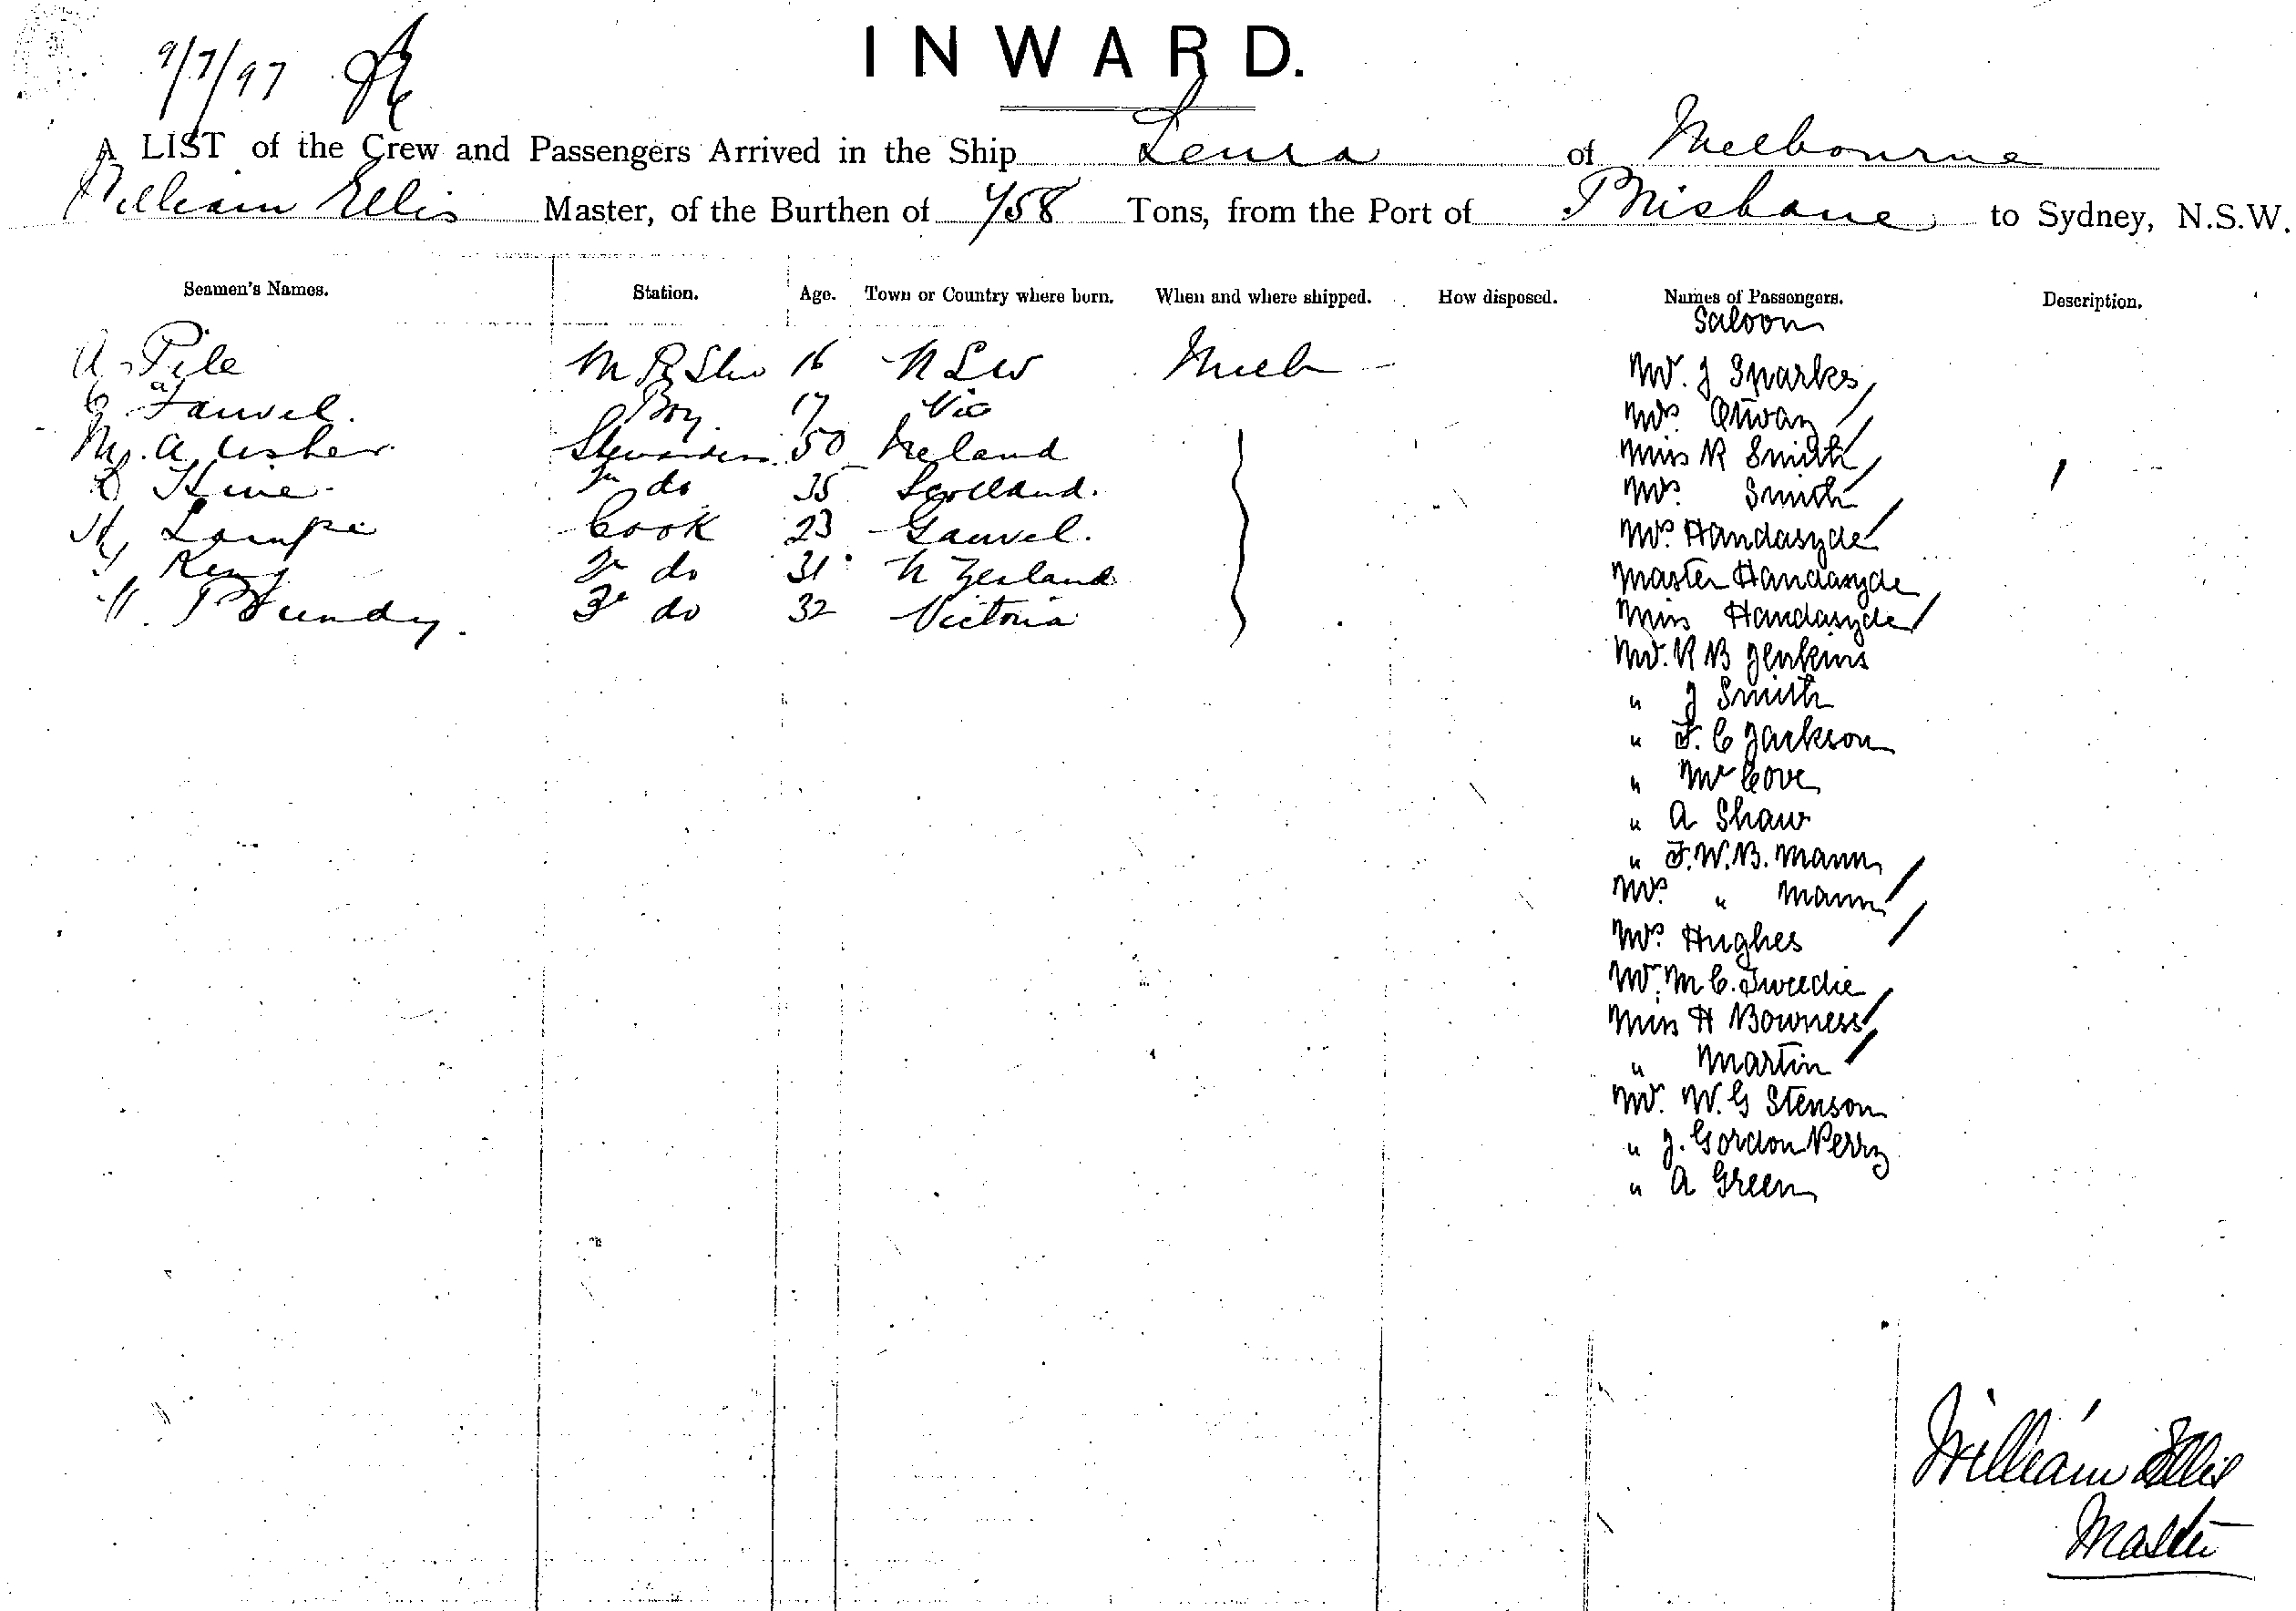 9/7/97
INWARD.
A LIST of the Crew and Passengers Arrived in the Ship Leura of Melbourne
William Ellis Master, of the Burthen of 458 Tons, from the Port of Brisbane to Sydney, N.S.W.
Seamen's Names. Station. Age. Town or Country where born. When and where shipped. How disposed. Names of Passengers. Description.
Saloon
A Pile 16 N S W Melb
Boy 17 Vic
M. A. Usher Stewardess 50 Ireland
do 35 Scotland.
Cook 23
King 2nd do 31 N Zealand
H. Bundy. 3rd do 32 Victoria
Mr. J Sparkes
Mrs
Miss R Smith
Mrs Smith
Mrs Handasyde
Master Handasyde
Miss Handasyde
Mr. R B Jenkins
" J Smith
" F. C Jackson
" McCove
" A Shaw
" F. W. B. Mann
Mrs " Mann
Mrs Hughes
Mr. M C. Tweedie
Miss H Bowness
" Martin
Mr. W. G Stenson
" J. Gordon Perry
" A Green
William Ellis
Master